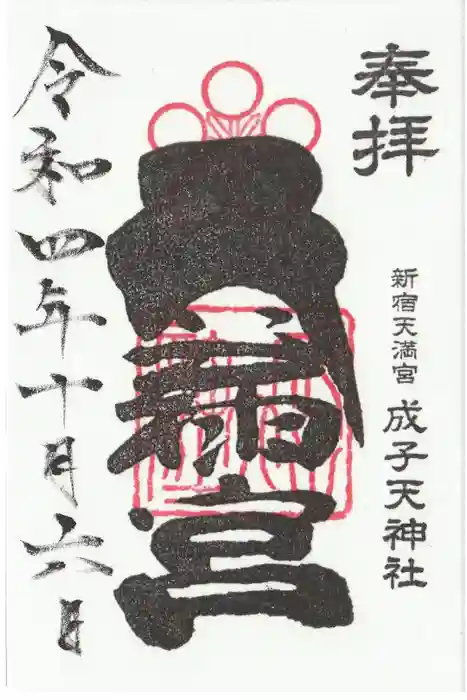 奉拝
新宿天満宮 成子天神社
天満宮
令和四年十月六日